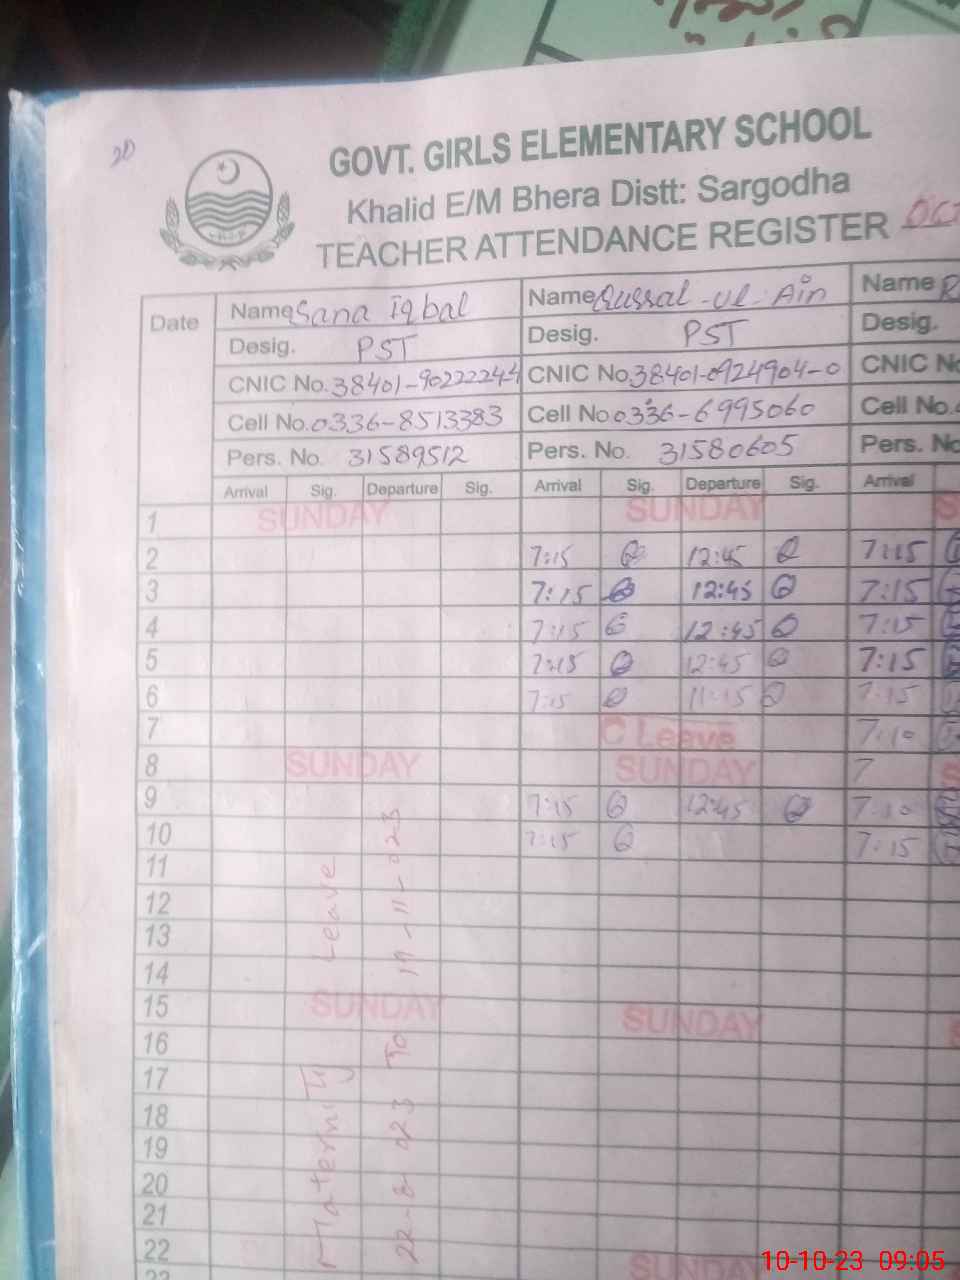 20
GOVT. GIRLS ELEMENTARY SCHOOL
Khalid E/M Bhera Distt: Sargodha
TEACHER ATTENDANCE REGISTER OCT
Date Name Sana Iqbal Name Qurral-ul-Ain Name R
Desig. PST Desig. PST Desig.
CNIC No. 38401-90222244 CNIC No. 38401-0924904-0 CNIC No
Cell No. 0336-8513383 Cell No 0336-6995060 Cell No.
Pers. No. 31589512 Pers. No. 31580605 Pers. No
Arrival Sig. Departure Sig. Arrival Sig. Departure Sig. Arrival
1 SUNDAY SUNDAY S
2 7:15 12:45 7:15
3 7:15 12:45 7:15
4 7:15 12:45 7:15
5 7:15 12:45 7:15
6 7:15 11:15 7:15
7 C Leave 7:10
8 SUNDAY SUNDAY 7 S
9 7:15 12:45 7:10
10 7:15 7:15
11
12
13
14
15 SUNDAY SUNDAY S
16
17
18
19
20
21
22
23 SUNDAY
Maternity Leave
22-8-023 To 19-11-023
10-10-23 09:05